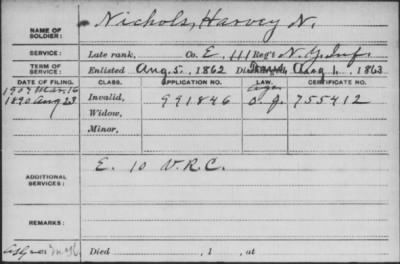 NAME OF SOLDIER: Nichols, Harvey N.
SERVICE: Late rank, Co. E, 111 Reg't N.Y. Inf.
TERM OF SERVICE: Enlisted Aug. 5, 1862 Aug 1, 1863
DATE OF FILING. CLASS. APPLICATION NO. LAW. CERTIFICATE NO.
1907 Mar 16
1890 Aug 23 Invalid, 991846 755412
Widow,
Minor,
ADDITIONAL SERVICES: E. 10 V.R.C.
REMARKS:
Died , 1 , at